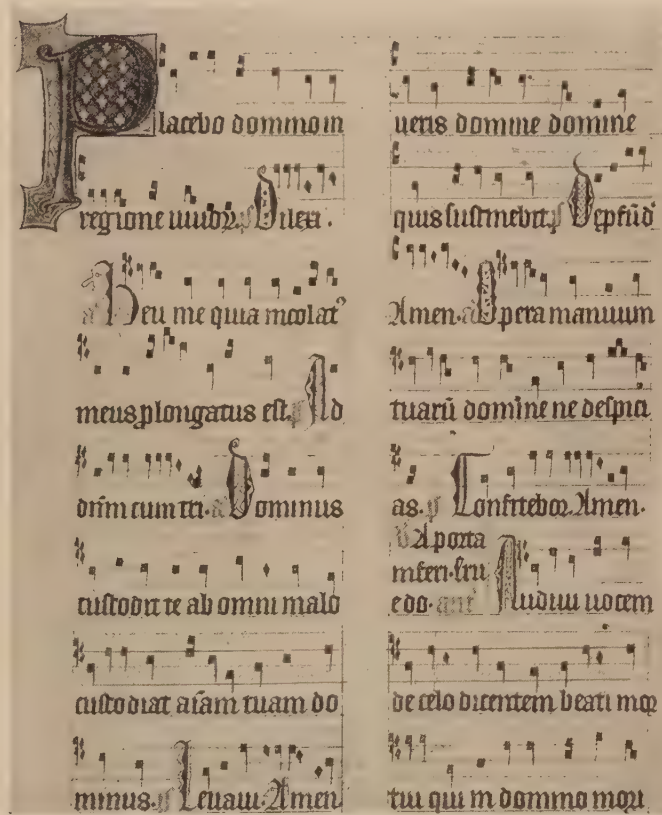 Placebo domino in
regione uiuoꝝ. ps Dilexi.
a Heu me quia incolatꝰ
meus ꝓlongatus est. ps Ad
dñm cum tri. a Dominus
custodit te ab omni malo
custodiat aīam tuam do
minus. ps Leuaui. Amen
ueris domine domine
quis sustinebit. ps De pfūd
Amen. a Opera manuum
tuarū domine ne despici
as. ps Confitebor. Amen.
A porta
inferi. eru
e do. anr Audiui uocem
de celo dicentem beati moꝛ
tui qui in domino moꝛi